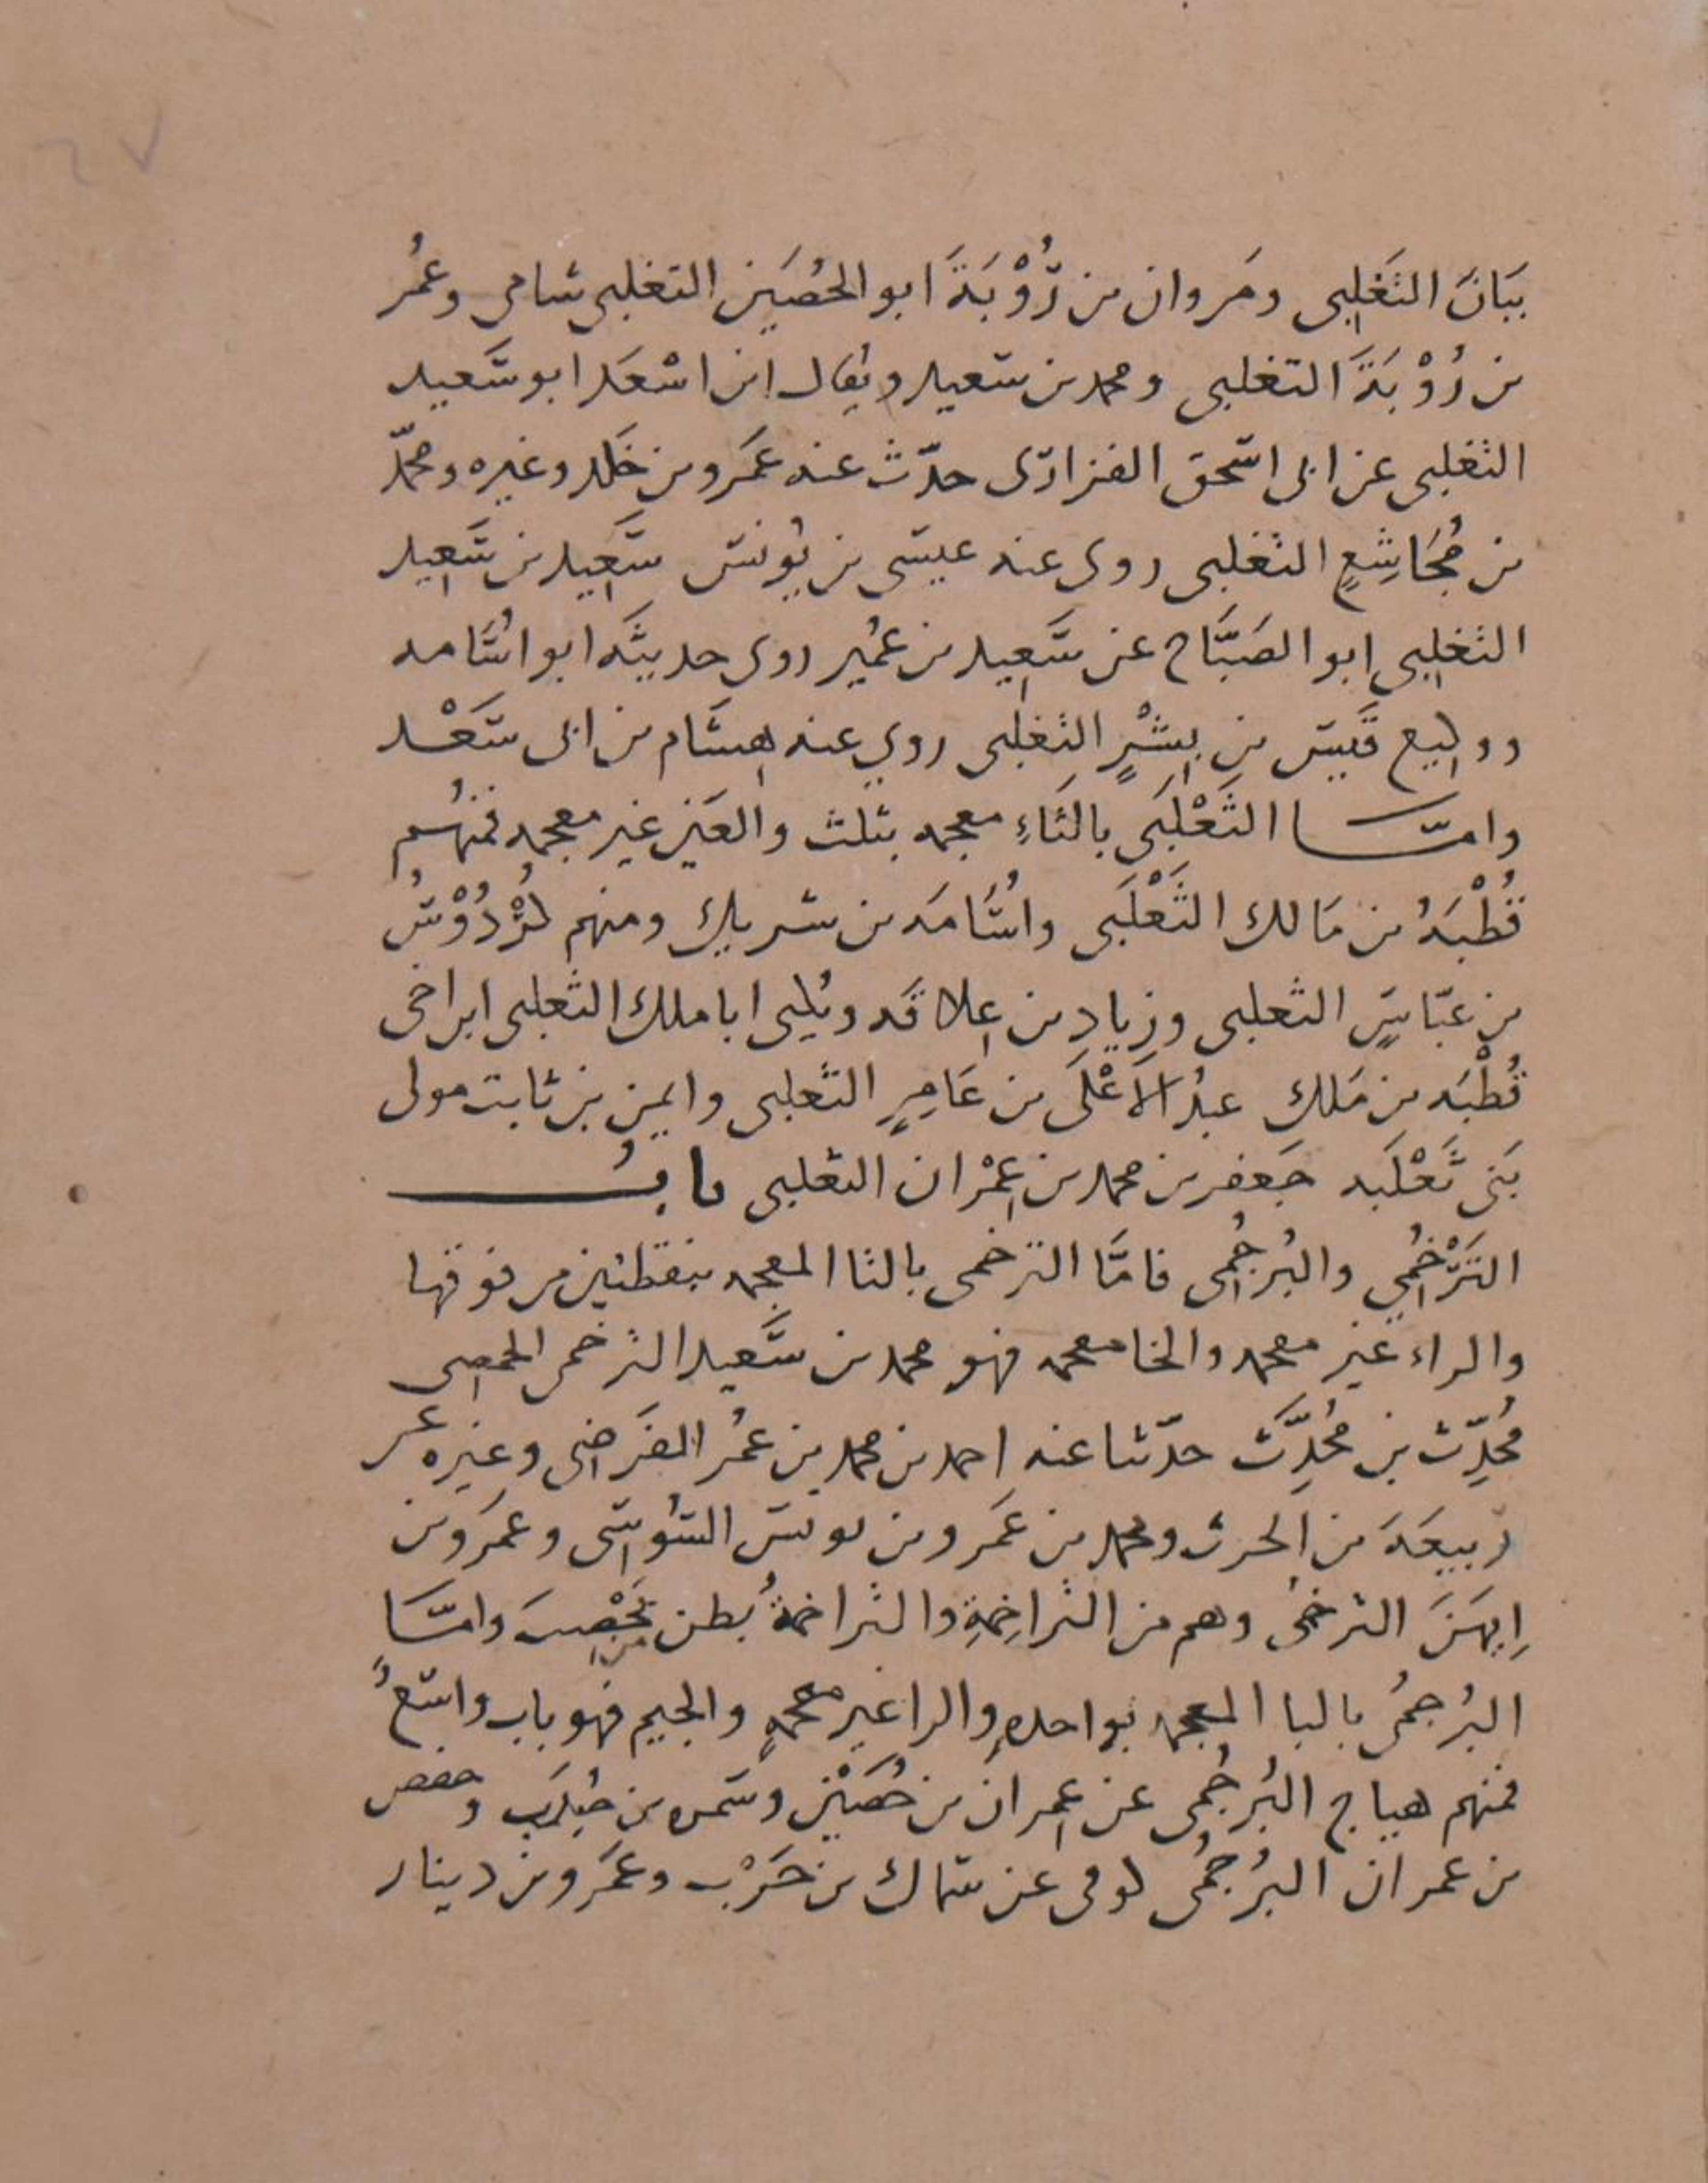 ٦٧
بَيَانَ التَغلِبى ومَروان بن رُؤْبَةَ ابو الحُصَين التغلبى شامى وعُمَر
بن رُؤْبَةَ التغلبى ومحمد بن سعيد ويقال ابن اسْعَد ابو سَعيد
التغلبى عن ابى اسحق الفزارى حدّث عنه عَمرو بن خلد وغيره ومحمّد
بن مُجَاشِعٍ التغلبى روى عنه عيسى بن يُونس سَعِيد بن سَعِيد
التغلِبى ابو الصَبَّاح عن سَعِيد بن عُمَير روى حديثَه ابو اسُامه
ووكيع قَيس بن بِشْرٍ التغلِبى روي عنه هِشَام بن ابى سَعْد
وامّا الثَعْلَبى بالثَاءِ معجمه بثلث والعَين غير معجمه فمنهُم
قُطْبَهُ بن مَالك الثَعْلَبى واسُامَه بن شريك ومنهم كُرْدُوْسُ
بن عَبّاسٍ الثعلبى وزِيادِ بن عِلاقَه ويُكنى ابا ملك الثعلبى ابن اخى
قُطْبَه بن مَلك عبدُ الأَعْلَى بن عَامِرٍ الثعلبى وايمن بن ثابت مولى
بَنى ثَعْلَبَه جَعفر بن محمد بن عِمْران الثعلبى بابُ
التَرْخُمِي والبُرجُمى فامَّا الترخمى بالتا المعجمه بنقطتين من فوقها
والراء غير معجمه والخا معجمه فهو محمد بن سَعيد الترخمى الحمصى
مُحَدِّث بن مُحَدِّث حدّثنا عنه احمد بن محمد بن عُمر الفَرَضى وغيره عن
رَبيعَه بن الحرث ومحمد بن عَمرو بن يونس السُوسى وعمَرو بن
اِبهَنَ الترخمى وهم من التراخِمَةِ والتراخمةُ بطن من يَحْصِبَ وامَّا
البُرجمُى بالبا المعجمه بواحدهٍ والرا غير معجمهٍ والجيم فهو باب واسعُ
فمنهم هياج البُرجُمى عن عِمران بن حُصَيْن وسَمره بن جُندَب وحفص
بن عمران البُرجُمُى كوفى عن سماك بن حَرْب وعَمرو بن دينار